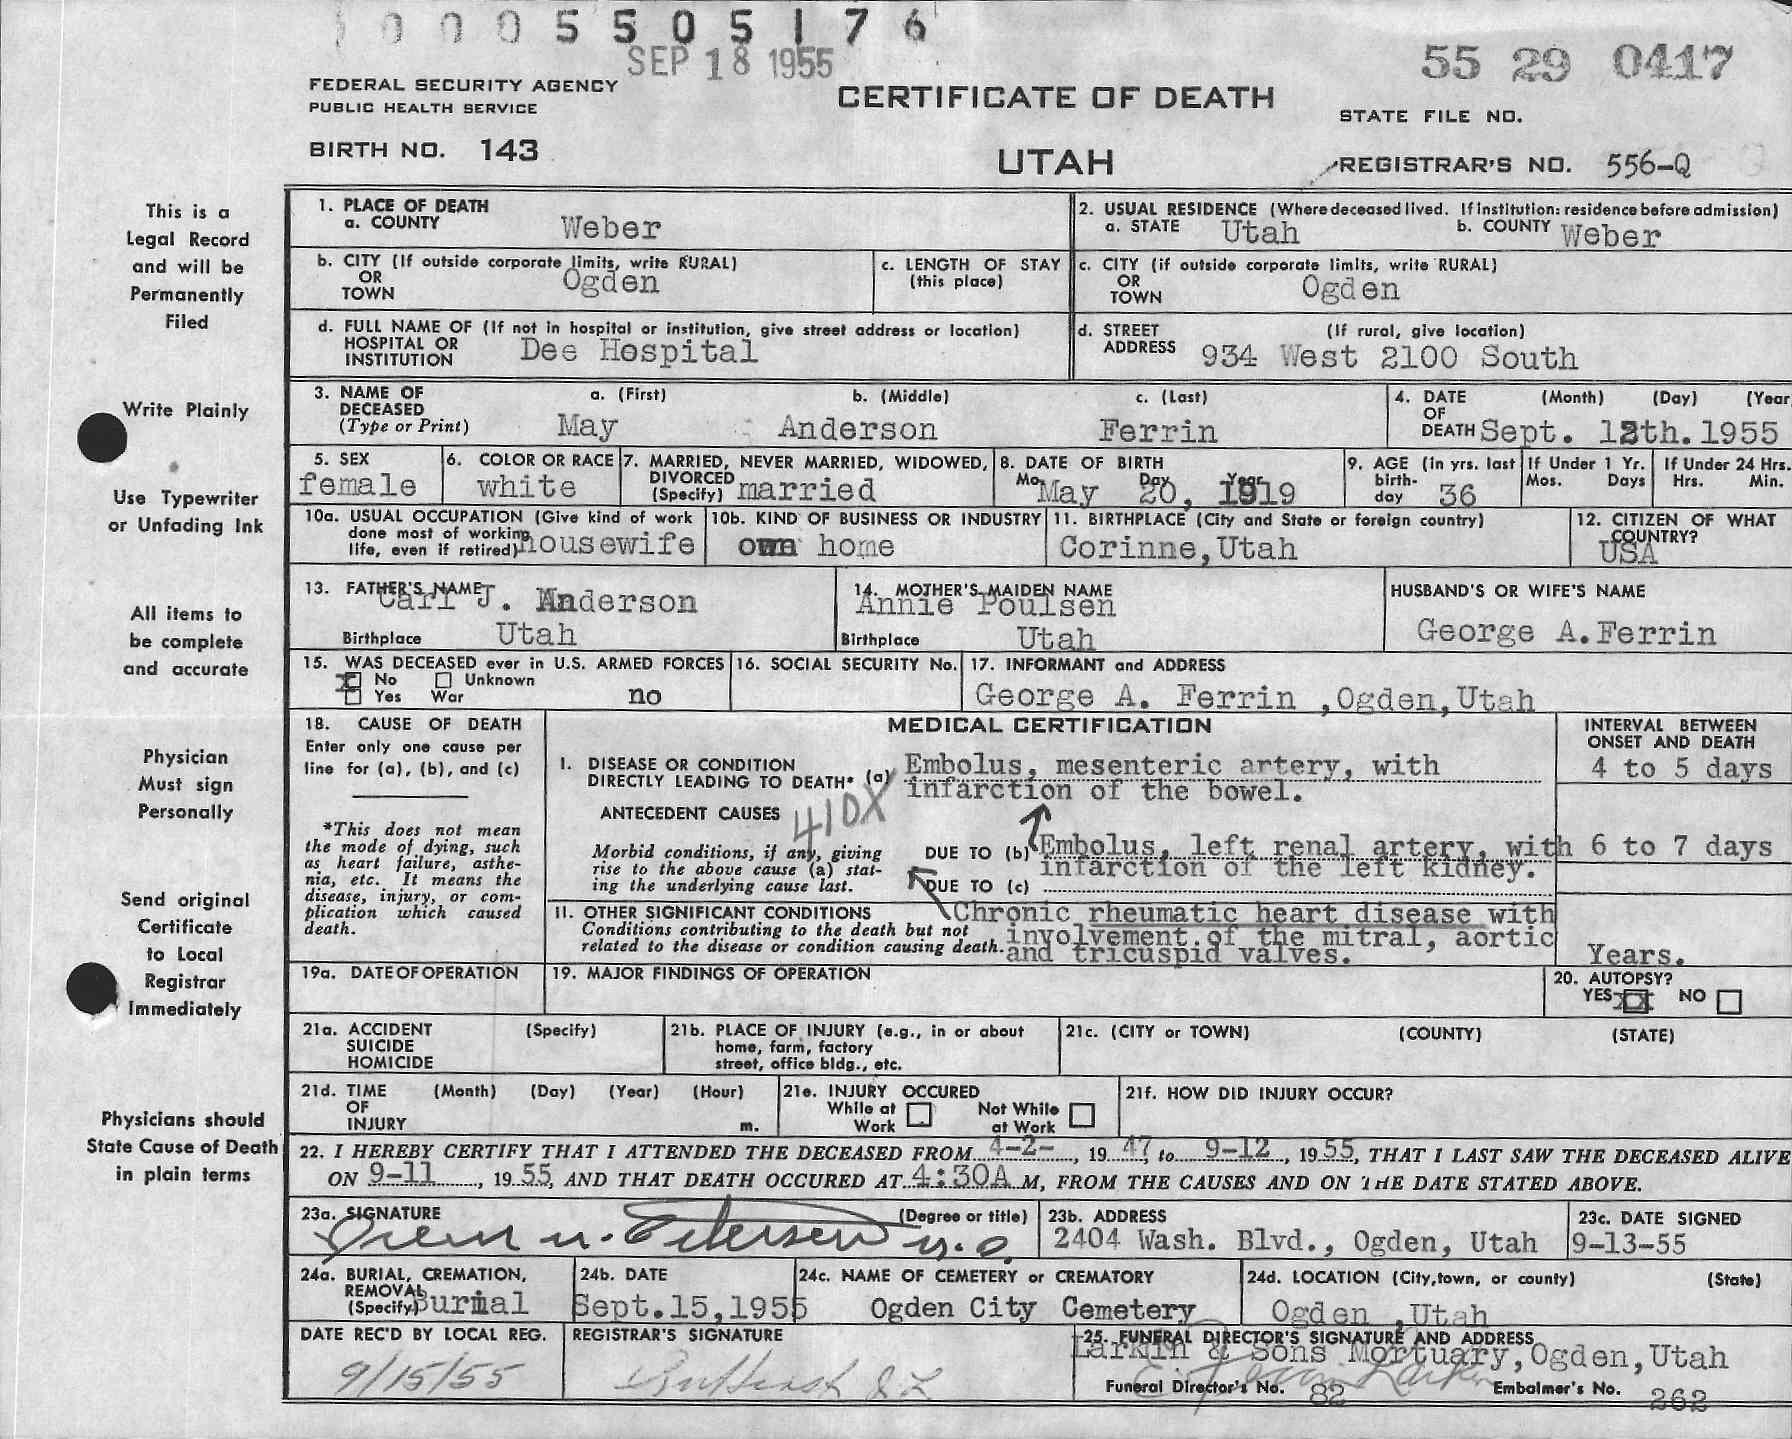 0 0 0 5 5 0 5 1 7 6
SEP 18 1955
55 29 0417
FEDERAL SECURITY AGENCY
PUBLIC HEALTH SERVICE
CERTIFICATE OF DEATH
STATE FILE NO.
BIRTH NO. 143
UTAH
REGISTRAR'S NO. 556-Q
This is a
Legal Record
and will be
Permanently
Filed
Write Plainly
Use Typewriter
or Unfading Ink
All items to
be complete
and accurate
Physician
Must sign
Personally
Send original
Certificate
to Local
Registrar
Immediately
Physicians should
State Cause of Death
in plain terms
1. PLACE OF DEATH
a. COUNTY Weber
2. USUAL RESIDENCE (Where deceased lived. If institution: residence before admission)
a. STATE Utah b. COUNTY Weber
b. CITY (If outside corporate limits, write RURAL)
OR
TOWN Ogden
c. LENGTH OF STAY
(this place)
c. CITY (if outside corporate limits, write RURAL)
OR
TOWN Ogden
d. FULL NAME OF (If not in hospital or institution, give street address or location)
HOSPITAL OR
INSTITUTION Dee Hospital
d. STREET (If rural, give location)
ADDRESS 934 West 2100 South
3. NAME OF
DECEASED
(Type or Print)
a. (First) b. (Middle) c. (Last)
May Anderson Ferrin
4. DATE (Month) (Day) (Year
OF
DEATH Sept. 12th. 1955
5. SEX
female
6. COLOR OR RACE
white
7. MARRIED, NEVER MARRIED, WIDOWED,
DIVORCED
(Specify) married
8. DATE OF BIRTH
Mo. Day Year
May 20, 1919
9. AGE (in yrs. last
birth-
day 36
If Under 1 Yr.
Mos. Days
If Under 24 Hrs.
Hrs. Min.
10a. USUAL OCCUPATION (Give kind of work
done most of working
life, even if retired) housewife
10b. KIND OF BUSINESS OR INDUSTRY
own home
11. BIRTHPLACE (City and State or foreign country)
Corinne, Utah
12. CITIZEN OF WHAT
COUNTRY?
USA
13. FATHER'S NAME
Carl J. Anderson
Birthplace Utah
14. MOTHER'S MAIDEN NAME
Annie Poulsen
Birthplace Utah
HUSBAND'S OR WIFE'S NAME
George A. Ferrin
15. WAS DECEASED ever in U.S. ARMED FORCES
No Unknown
Yes War no
16. SOCIAL SECURITY No.
17. INFORMANT and ADDRESS
George A. Ferrin ,Ogden, Utah
18. CAUSE OF DEATH
Enter only one cause per
line for (a), (b), and (c)
*This does not mean
the mode of dying, such
as heart failure, asthe-
nia, etc. It means the
disease, injury, or com-
plication which caused
death.
MEDICAL CERTIFICATION
INTERVAL BETWEEN
ONSET AND DEATH
I. DISEASE OR CONDITION
DIRECTLY LEADING TO DEATH* (a) Embolus, mesenteric artery, with
infarction of the bowel.
4 to 5 days
ANTECEDENT CAUSES
410X
Morbid conditions, if any, giving
rise to the above cause (a) stat-
ing the underlying cause last.
DUE TO (b) Embolus, left renal artery, with
infarction of the left kidney.
6 to 7 days
DUE TO (c)
II. OTHER SIGNIFICANT CONDITIONS
Conditions contributing to the death but not
related to the disease or condition causing death.
Chronic rheumatic heart disease with
involvement of the mitral, aortic
and tricuspid valves.
Years.
19a. DATE OF OPERATION
19. MAJOR FINDINGS OF OPERATION
20. AUTOPSY?
YES XX NO
21a. ACCIDENT (Specify)
SUICIDE
HOMICIDE
21b. PLACE OF INJURY (e.g., in or about
home, farm, factory
street, office bldg., etc.
21c. (CITY or TOWN) (COUNTY) (STATE)
21d. TIME (Month) (Day) (Year) (Hour)
OF
INJURY m.
21e. INJURY OCCURED
While at Work Not While at Work
21f. HOW DID INJURY OCCUR?
22. I HEREBY CERTIFY THAT I ATTENDED THE DECEASED FROM 4-2-, 19 47, to 9-12, 19 55, THAT I LAST SAW THE DECEASED ALIVE
ON 9-11, 19 55, AND THAT DEATH OCCURED AT 4:30A M, FROM THE CAUSES AND ON THE DATE STATED ABOVE.
23a. SIGNATURE (Degree or title)
Petersen M.D.
23b. ADDRESS
2404 Wash. Blvd., Ogden, Utah
23c. DATE SIGNED
9-13-55
24a. BURIAL, CREMATION,
REMOVAL
(Specify) Burial
24b. DATE
Sept. 15, 1955
24c. NAME OF CEMETERY or CREMATORY
Ogden City Cemetery
24d. LOCATION (City, town, or county) (State)
Ogden ,Utah
DATE REC'D BY LOCAL REG.
9/15/55
REGISTRAR'S SIGNATURE
25. FUNERAL DIRECTOR'S SIGNATURE AND ADDRESS
Larkin & Sons Mortuary, Ogden, Utah
Funeral Director's No. 82 Embalmer's No. 262